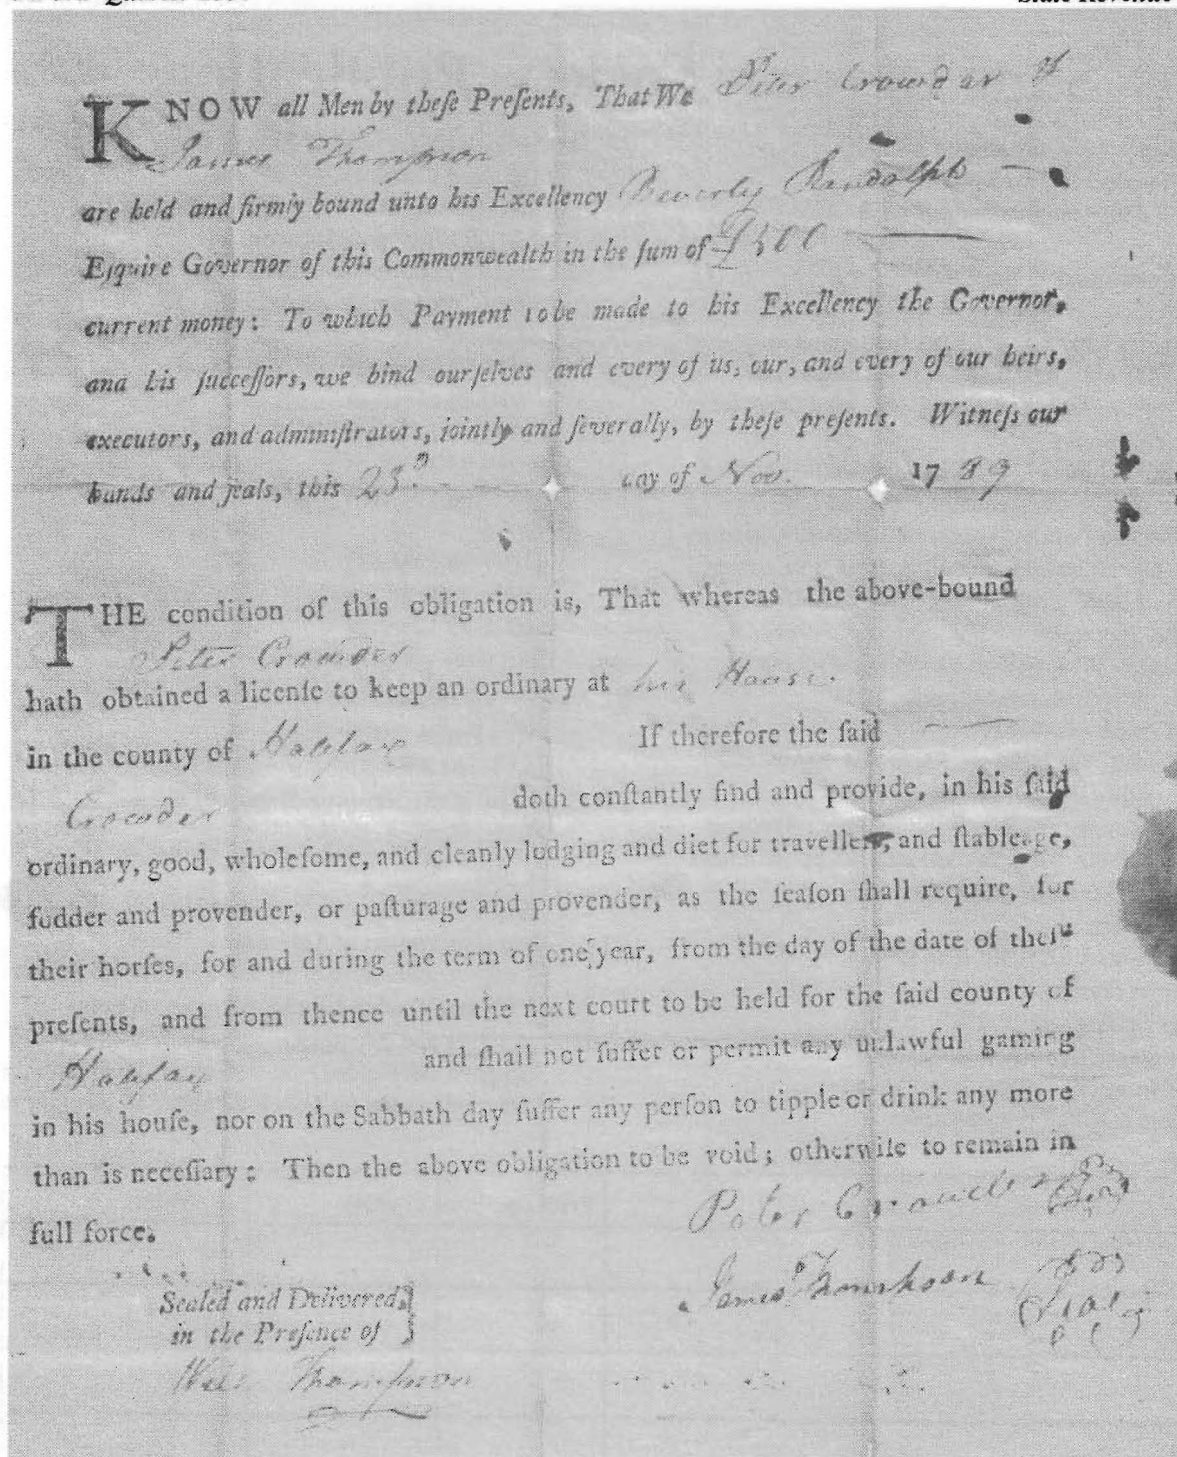 KNOW all Men by theſe Preſents, That We Peter Crowder &
James Thompson
are held and firmly bound unto his Excellency Beverly Randolph
Eſquire Governor of this Commonwealth in the ſum of
current money: To which Payment to be made to his Excellency the Governor,
and his ſucceſſors, we bind ourſelves and every of us, our, and every of our heirs,
executors, and adminiſtrators, jointly and ſeverally, by theſe preſents. Witneſs our
hands and ſeals, this 23d day of Nov. 1789
THE condition of this obligation is, That whereas the above-bound
Peter Crowder
hath obtained a licenſe to keep an ordinary at his House.
in the county of Halifax If therefore the ſaid
Crowder doth conſtantly find and provide, in his ſaid
ordinary, good, wholeſome, and cleanly lodging and diet for travellers, and ſtableage,
fodder and provender, or paſturage and provender, as the ſeaſon ſhall require, for
their horſes, for and during the term of one year, from the day of the date of theſe
preſents, and from thence until the next court to be held for the ſaid county of
Halifax and ſhall not ſuffer or permit any unlawful gaming
in his houſe, nor on the Sabbath day ſuffer any perſon to tipple or drink any more
than is neceſſary: Then the above obligation to be void; otherwiſe to remain in
full force.
Peter Crowder
James Thomhson
Sealed and Delivered,
in the Preſence of
Thompson